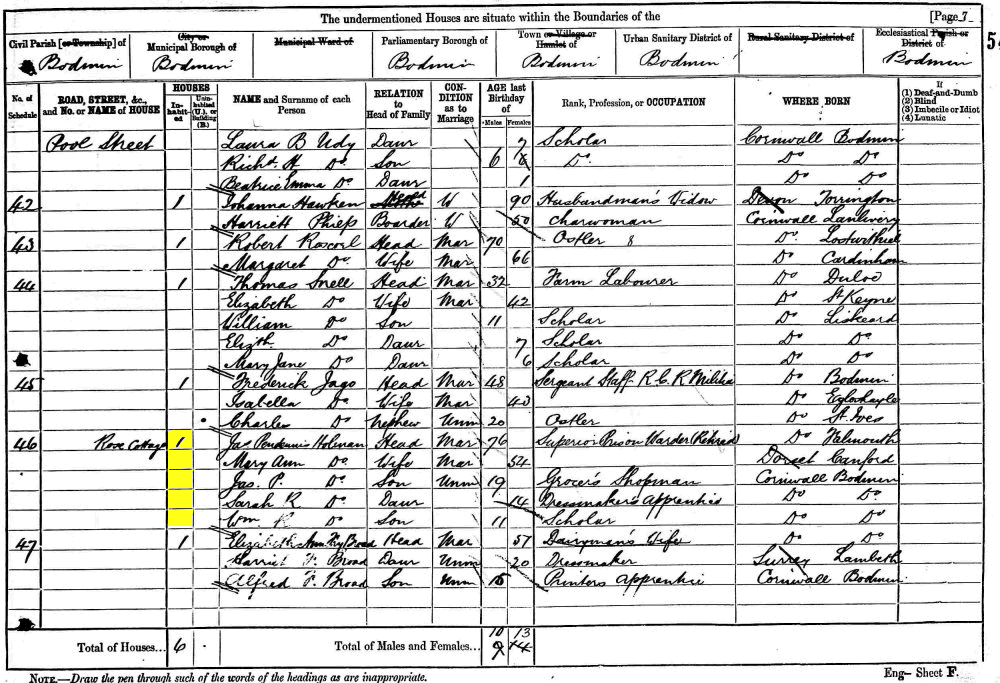 The undermentioned Houses are situate within the Boundaries of the [Page 7
Civil Parish [or Township] of City or Municipal Borough of Municipal Ward of Parliamentary Borough of Town or Village or Hamlet of Urban Sanitary District of Rural Sanitary District of Ecclesiastical Parish or District of
Bodmin Bodmin Bodmin Bodmin Bodmin Bodmin
No. of Schedule ROAD, STREET, &c., and No. or NAME of HOUSE HOUSES Inhabited Uninhabited (U.), or Building (B.) NAME and Surname of each Person RELATION to Head of Family CONDITION as to Marriage AGE last Birthday of Males Females Rank, Profession, or OCCUPATION WHERE BORN If (1) Deaf-and-Dumb (2) Blind (3) Imbecile or Idiot (4) Lunatic
Pool Street Laura B Udy Daur 7 Scholar Cornwall Bodmin
Richd. H Do Son 6 Do. Do Do
Beatrice Emma Do Daur 1 Do Do
42 1 Johanna Hawken Head W 90 Husbandman's Widow Devon Torrington
Harriett Phiep Boarder W 50 Charwoman Cornwall Lanlivery
43 1 Robert Roscorl Head Mar 70 Ostler Do Lostwithiel
Margaret Do Wife Mar 66 Do Cardinham
44 1 Thomas Snell Head Mar 32 Farm Labourer Do Duloe
Elizabeth Do Wife Mar 42 Do St Keyne
William Do Son 11 Scholar Do Liskeard
Elizth Do Daur 7 Scholar Do Do
Mary Jane Do Daur 6 Scholar Do Do
45 1 Frederick Jago Head Mar 48 Sergeant Staff R C R Militia Do Bodmin
Isabella Do Wife Mar 40 Do Egloshayle
Charles Do Nephew Unm 20 Ostler Do St. Ives
46 Rose Cottage 1 Jas Pendennis Holman Head Mar 76 Superior Prison Warder (Retired) Do Falmouth
Mary Ann Do Wife Mar 54 Dorset Canford
Jas. P. Do Son Unm 19 Grocer's Shopman Cornwall Bodmin
Sarah R Do Daur 14 Dressmaker's Apprentice Do Do
Wm. R Do Son 11 Scholar Do Do
47 1 Elizabeth Ann Broad Head Mar 57 Dairyman's Wife Do Do
Harriet F. Broad Daur Unm 20 Dressmaker Surrey Lambeth
Alfred F. Broad Son Unm 15 Printers Apprentice Cornwall Bodmin
10 13
Total of Houses... 6 Total of Males and Females... 9 14
NOTE.—Draw the pen through such of the words of the headings as are inappropriate. Eng— Sheet F.